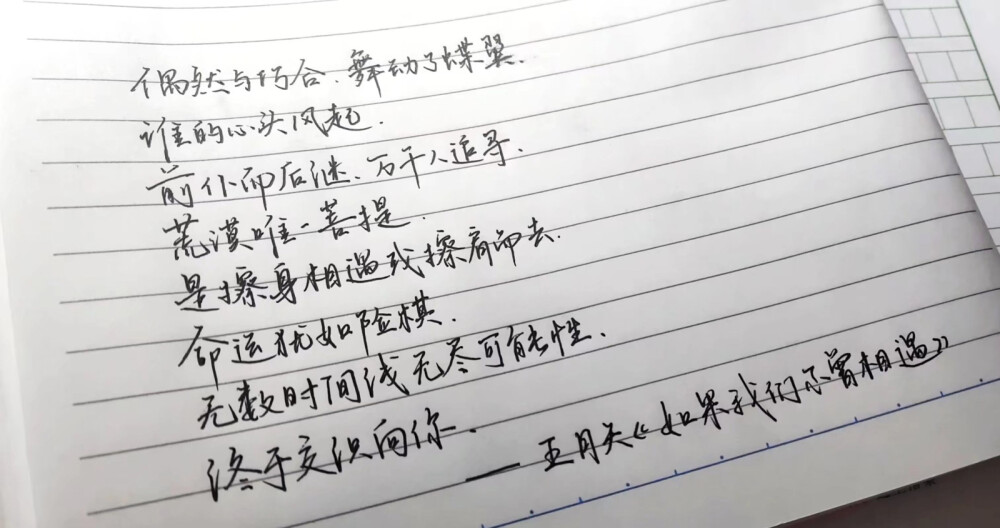 偶然与巧合.舞动了蝶翼.
谁的心头风起.
前仆而后继.万千人追寻.
荒漠唯一菩提.
是擦身相遇或擦肩而去.
命运犹如险棋.
无数时间线无尽可能性.
终于交织向你.
——五月天《如果我们不曾相遇》